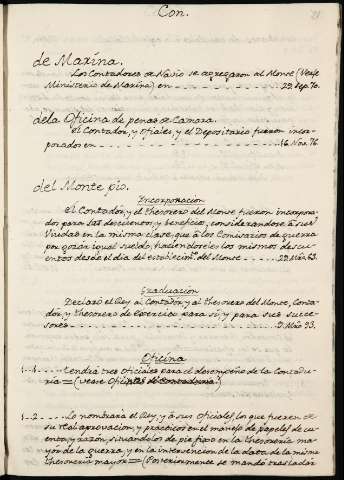 Con.
de Marina.
Los Contadores de Navio se agregaron al Monte (Vease
Ministerio de Marina) en 29. Sep. 70.
dela Oficina de penas de Camara.
el Contador, y oficiales, y el Depositario fueron incor-
porados en 16. Nov. 76
del Monte pio.
Incorporacion
el Contador, y el Thesorero del Monte fueron incorpora-
dos para las descuentos, y beneficios, considerandose à sus
Viudas en la misma clase, que à los Comisarios de guerra
por gozar igual sueldo, haciendoseles los mismos descu-
entos desde el dia del establecimto. del Monte 29. Mzo. 63.
Graduacion
Declaró el Rey al Contador, y al Thesorero del Monte, Conta-
dor, y Thesorero de Exercito para si, y para sus succe-
sores 9. Mzo. 93.
Oficina
1-1 tendrá tres oficiales para el desempeño de la Contadu-
ria = (Vease Oficiales de Contaduria)
1-2 Lo nombraria el Rey, y à sus oficiales, los que fueren de
su real aprovacion, y practicos en el manejo de papeles de cu-
enta, y razon, situandolos de pie fixo en la thesoreria ma-
yor de la guerra, y en la intervencion de la data de la misma
thesoreria mayor = (Posteriormente se mandó trasladar